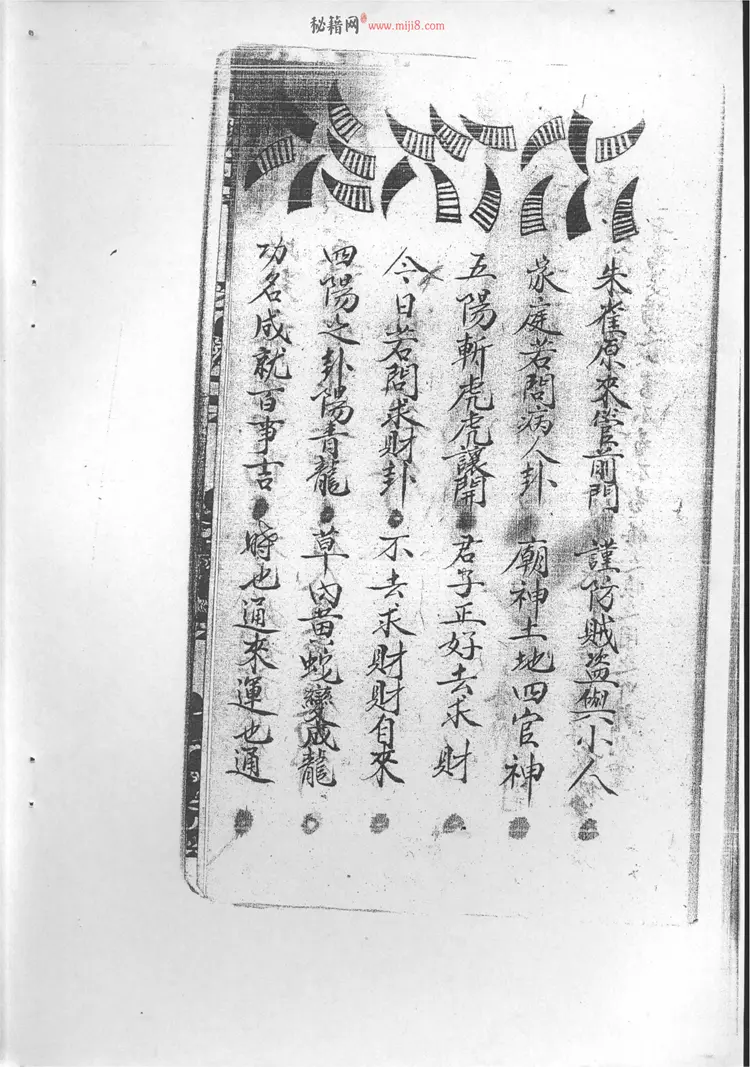 秘籍网 www.miji8.com
朱雀原來管前門 謹防賊盜與小人
家庭若問病人卦 廟神土地四官神
五陽斬虎虎讓開 君子正好去求財
今日若問求財卦 不去求財財自來
四陽之卦陽青龍 草內黃蛇變成龍
功名成就百事吉 時也通來運也通